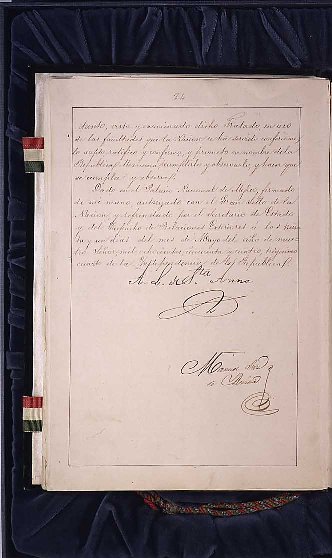 24
tando, visto y examinado dicho Tratado, en uso
de las facultades que la Nacion se ha servido conferirme,
lo ratifico y confirmo, y prometo en nombre de la
Republica Mexicana cumplirlo y observarlo y hacer que
se cumpla y observe.
Dado en el Palacio Nacional de Mejico, firmado
de mi mano, autorizado con el Gran Sello de la
Nacion y refrendado por el Secretario de Estado
y del Despacho de Relaciones Exteriores á los
y un dias del mes de Mayo del año de mil
ochocientos cincuenta y cuatro, trigesimo
cuarto de la Independencia de la Republica.
A. L. de Sta. Anna
Manuel Diez
de Bonilla